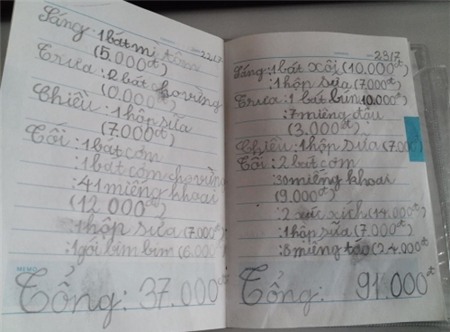 22/7
Sáng: 1 bát mì tôm
(5.000đ)
Trưa: 2 bát
(0.000đ)
Chiều: 1 hộp sữa
(7.000đ)
Tối: 1 bát cơm
: 1 bát cơm
: 41 miếng khoai
(12 000đ)
: 1 hộp sữa (7.000đ)
: 1 gói bim bim (6.000
MEMO
Tổng: 37.000đ
23/7
Sáng: 1 bát xôi (10.000đ)
: 1 hộp sữa (7.000đ)
Trưa: 1 bát bún (10.000đ)
: 7 miếng đậu
(3.000đ)
Chiều: 1 hộp sữa (7.000
Tối: 2 bát cơm
: 30 miếng khoai
(9.000đ)
: 2 xúc xích (14.000đ)
: 1 hộp sữa (7.000đ)
: 8 miếng táo (24.000đ
Tổng: 91.000đ